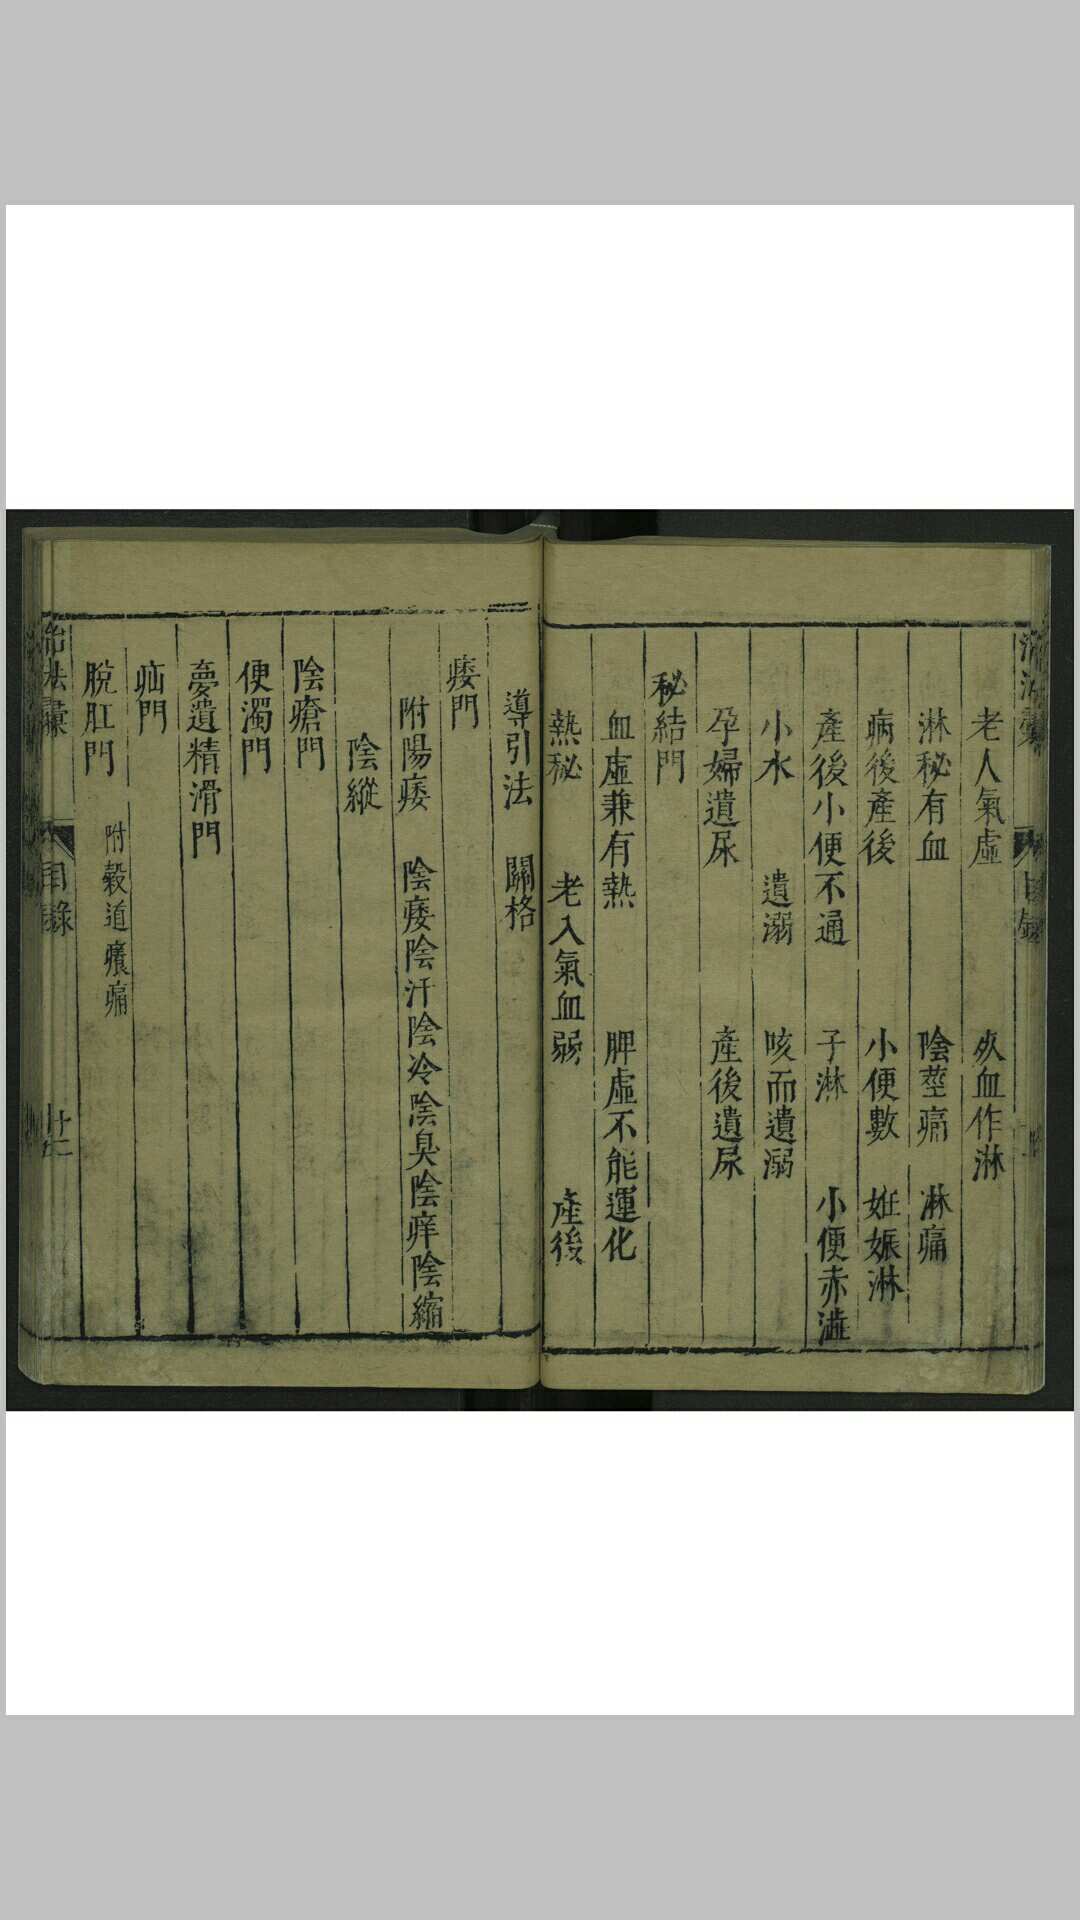 老人氣虛 死血作淋
淋秘有血 陰莖痛 淋痛
病後產後 小便數 姙娠淋
產後小便不通 子淋 小便赤澁
小水 遺溺 咳而遺溺
孕婦遺尿 產後遺尿
秘結門
血虛兼有熱 脾虛不能運化
熱秘 老人氣血弱 產後
導引法 關格
痿門
附陽痿 陰痿陰汗陰冷陰臭陰痒陰縮
陰縱
陰瘡門
便濁門
夢遺精滑門
疝門
脫肛門 附穀道癢痛
治法彙 目錄